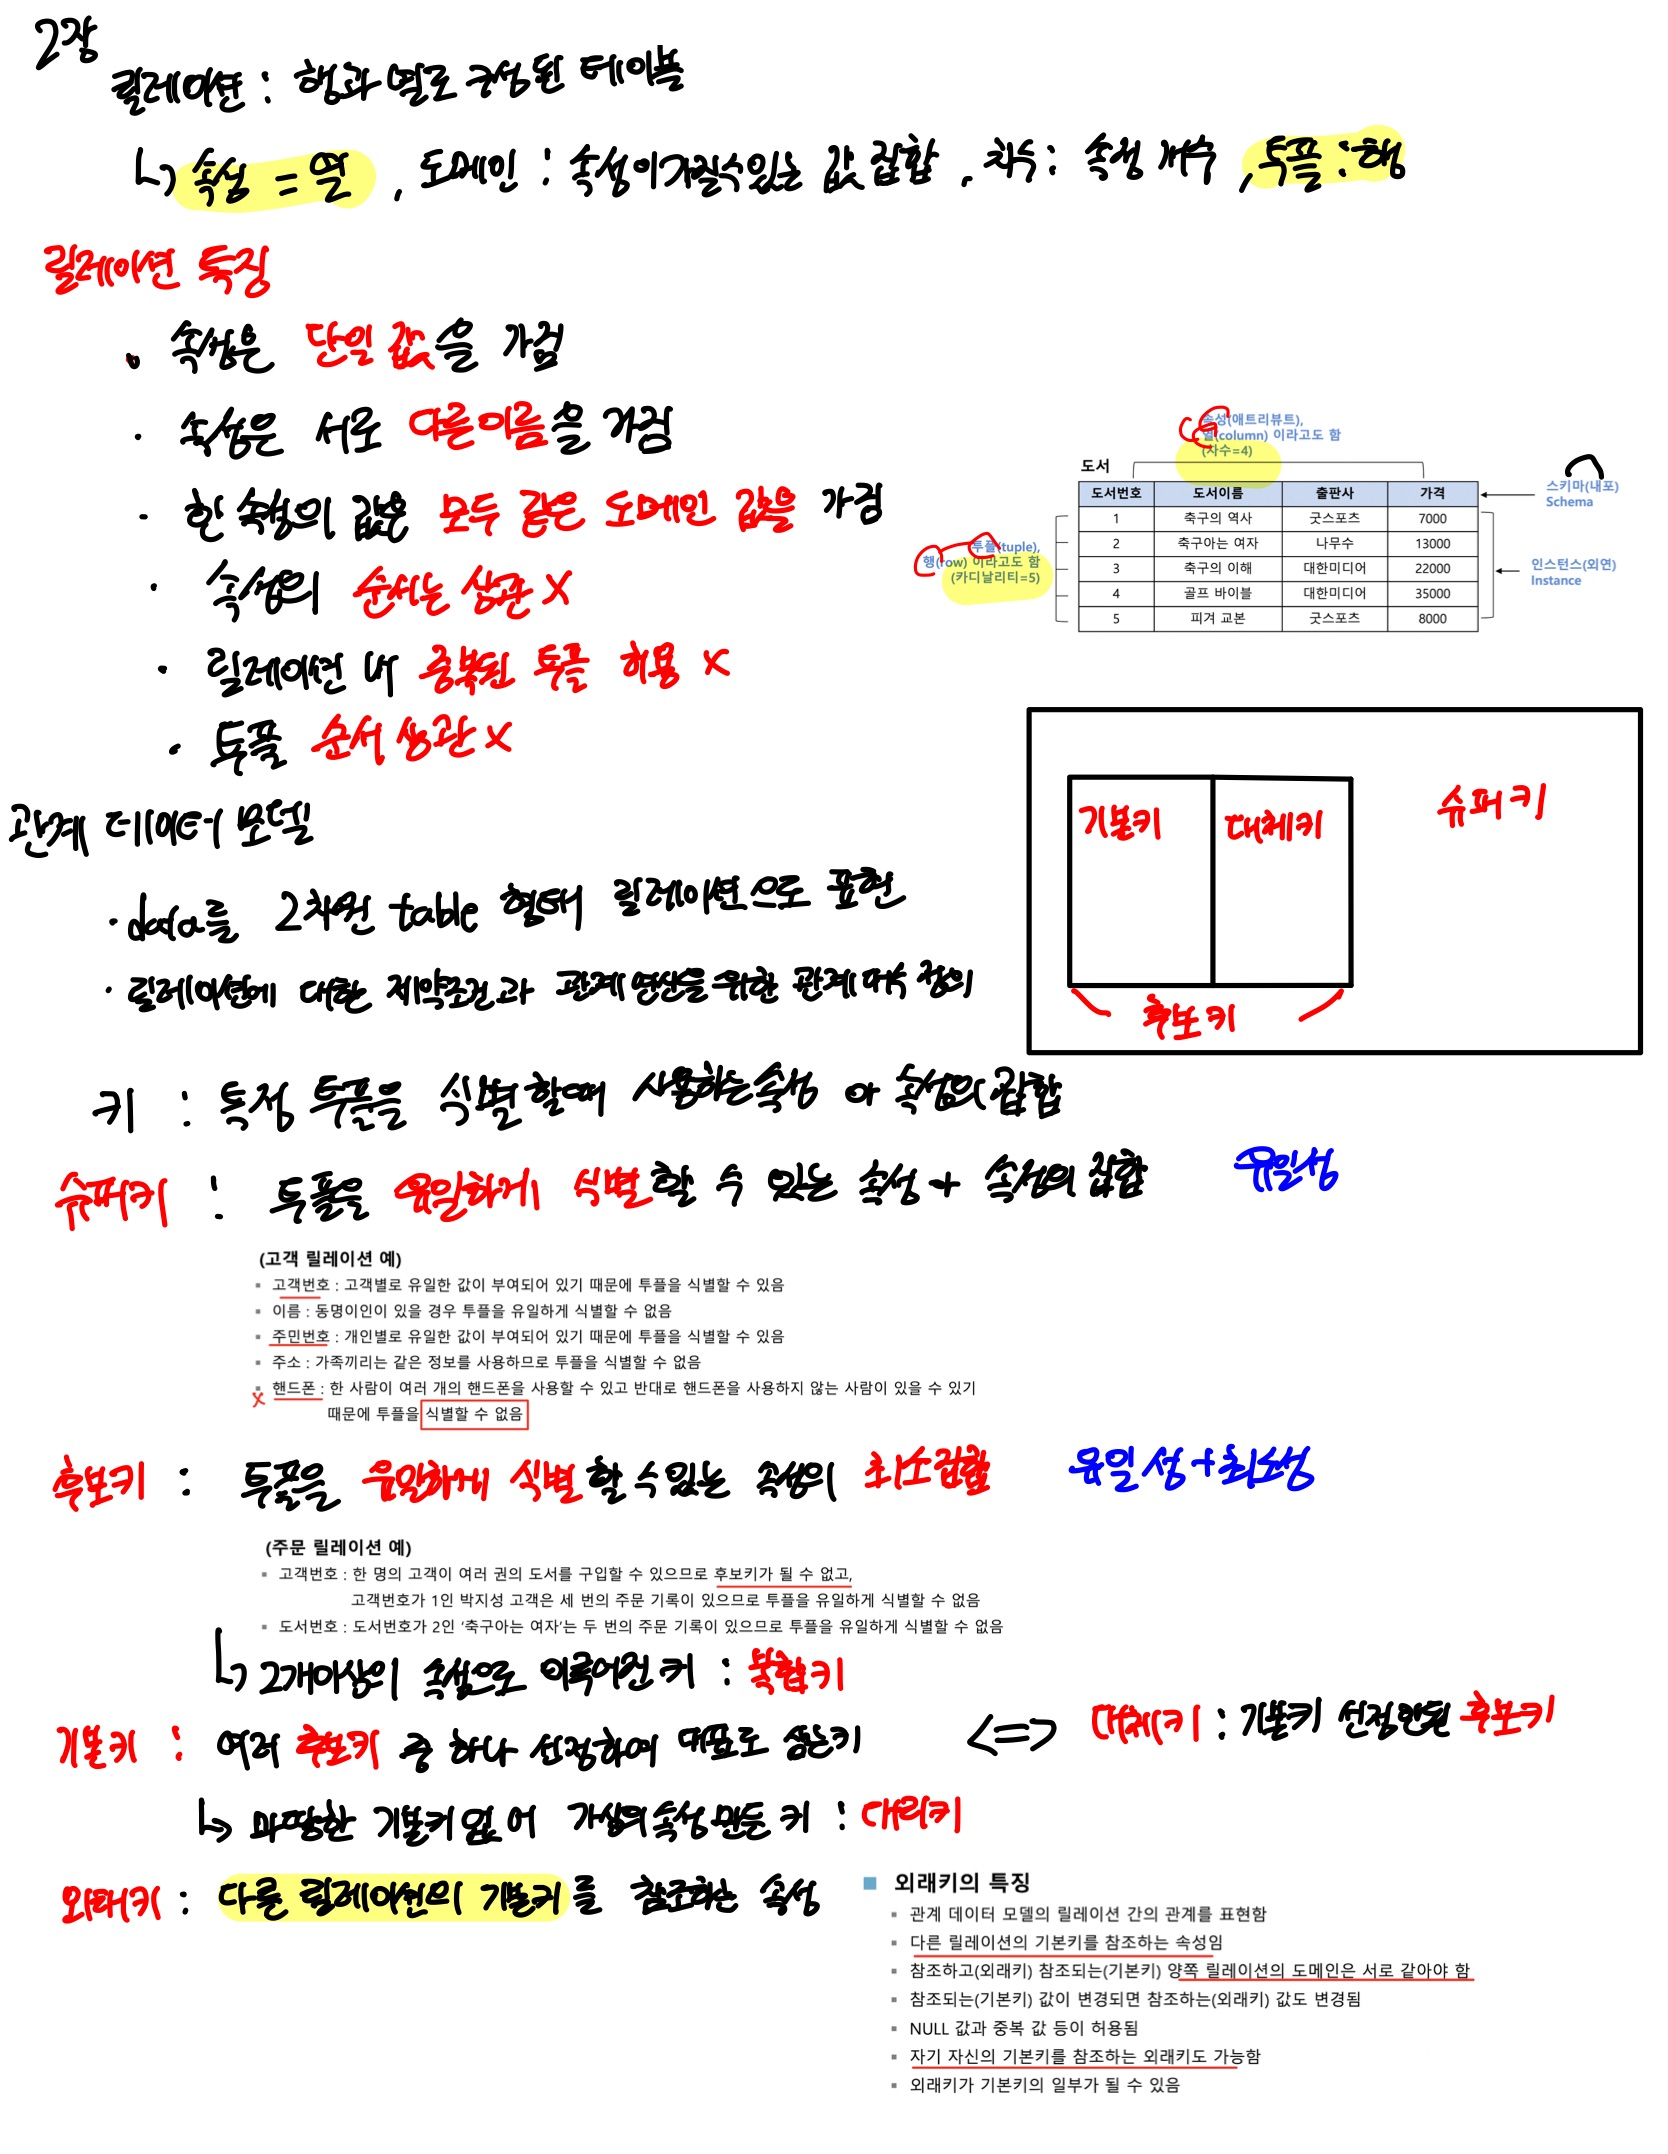 2장
릴레이션 : 행과 열로 구성된 테이블
↳ 속성 = 열 , 도메인 : 속성이 가질수있는 값 집합 , 차수 : 속성 개수 , 투플 : 행
릴레이션 특징
· 속성은 단일 값을 가짐
· 속성은 서로 다른이름을 가짐
· 한 속성의 값은 모두 같은 도메인 값을 가짐
· 속성의 순서는 상관 X
· 릴레이션 내 중복된 투플 허용 X
· 투플 순서 상관 X
속성(애트리뷰트),
열(column) 이라고도 함
(차수=4)
도서
도서번호 도서이름 출판사 가격
1 축구의 역사 굿스포츠 7000
2 축구아는 여자 나무수 13000
3 축구의 이해 대한미디어 22000
4 골프 바이블 대한미디어 35000
5 피겨 교본 굿스포츠 8000
투플(tuple),
행(row) 이라고도 함
(카디날리티=5)
스키마(내포)
Schema
인스턴스(외연)
Instance
관계 데이터 모델
· data를 2차원 table 형태 릴레이션으로 표현
· 릴레이션에 대한 제약조건과 관계 연산을 위한 관계대수 정의
기본키 대체키 슈퍼키
후보키
키 : 특정 투플을 식별할때 사용하는 속성 or 속성의 집합
슈퍼키 : 투플을 유일하게 식별할 수 있는 속성 + 속성의 집합 유일성
(고객 릴레이션 예)
▪ 고객번호 : 고객별로 유일한 값이 부여되어 있기 때문에 투플을 식별할 수 있음
▪ 이름 : 동명이인이 있을 경우 투플을 유일하게 식별할 수 없음
▪ 주민번호 : 개인별로 유일한 값이 부여되어 있기 때문에 투플을 식별할 수 있음
▪ 주소 : 가족끼리는 같은 정보를 사용하므로 투플을 식별할 수 없음
X ▪ 핸드폰 : 한 사람이 여러 개의 핸드폰을 사용할 수 있고 반대로 핸드폰을 사용하지 않는 사람이 있을 수 있기
때문에 투플을 식별할 수 없음
후보키 : 투플을 유일하게 식별할 수 있는 속성의 최소집합 유일성+최소성
(주문 릴레이션 예)
▪ 고객번호 : 한 명의 고객이 여러 권의 도서를 구입할 수 있으므로 후보키가 될 수 없고,
고객번호가 1인 박지성 고객은 세 번의 주문 기록이 있으므로 투플을 유일하게 식별할 수 없음
▪ 도서번호 : 도서번호가 2인 ‘축구아는 여자’는 두 번의 주문 기록이 있으므로 투플을 유일하게 식별할 수 없음
↳ 2개이상의 속성으로 이루어진 키 : 복합키
기본키 : 여러 후보키 중 하나 선정하여 대표로 삼는키 <=> 대체키 : 기본키 선정안된 후보키
↳ 마땅한 기본키 없어 가상의 속성 만든 키 : 대리키
외래키 : 다른 릴레이션의 기본키를 참조하는 속성
■ 외래키의 특징
▪ 관계 데이터 모델의 릴레이션 간의 관계를 표현함
▪ 다른 릴레이션의 기본키를 참조하는 속성임
▪ 참조하고(외래키) 참조되는(기본키) 양쪽 릴레이션의 도메인은 서로 같아야 함
▪ 참조되는(기본키) 값이 변경되면 참조하는(외래키) 값도 변경됨
▪ NULL 값과 중복 값 등이 허용됨
▪ 자기 자신의 기본키를 참조하는 외래키도 가능함
▪ 외래키가 기본키의 일부가 될 수 있음